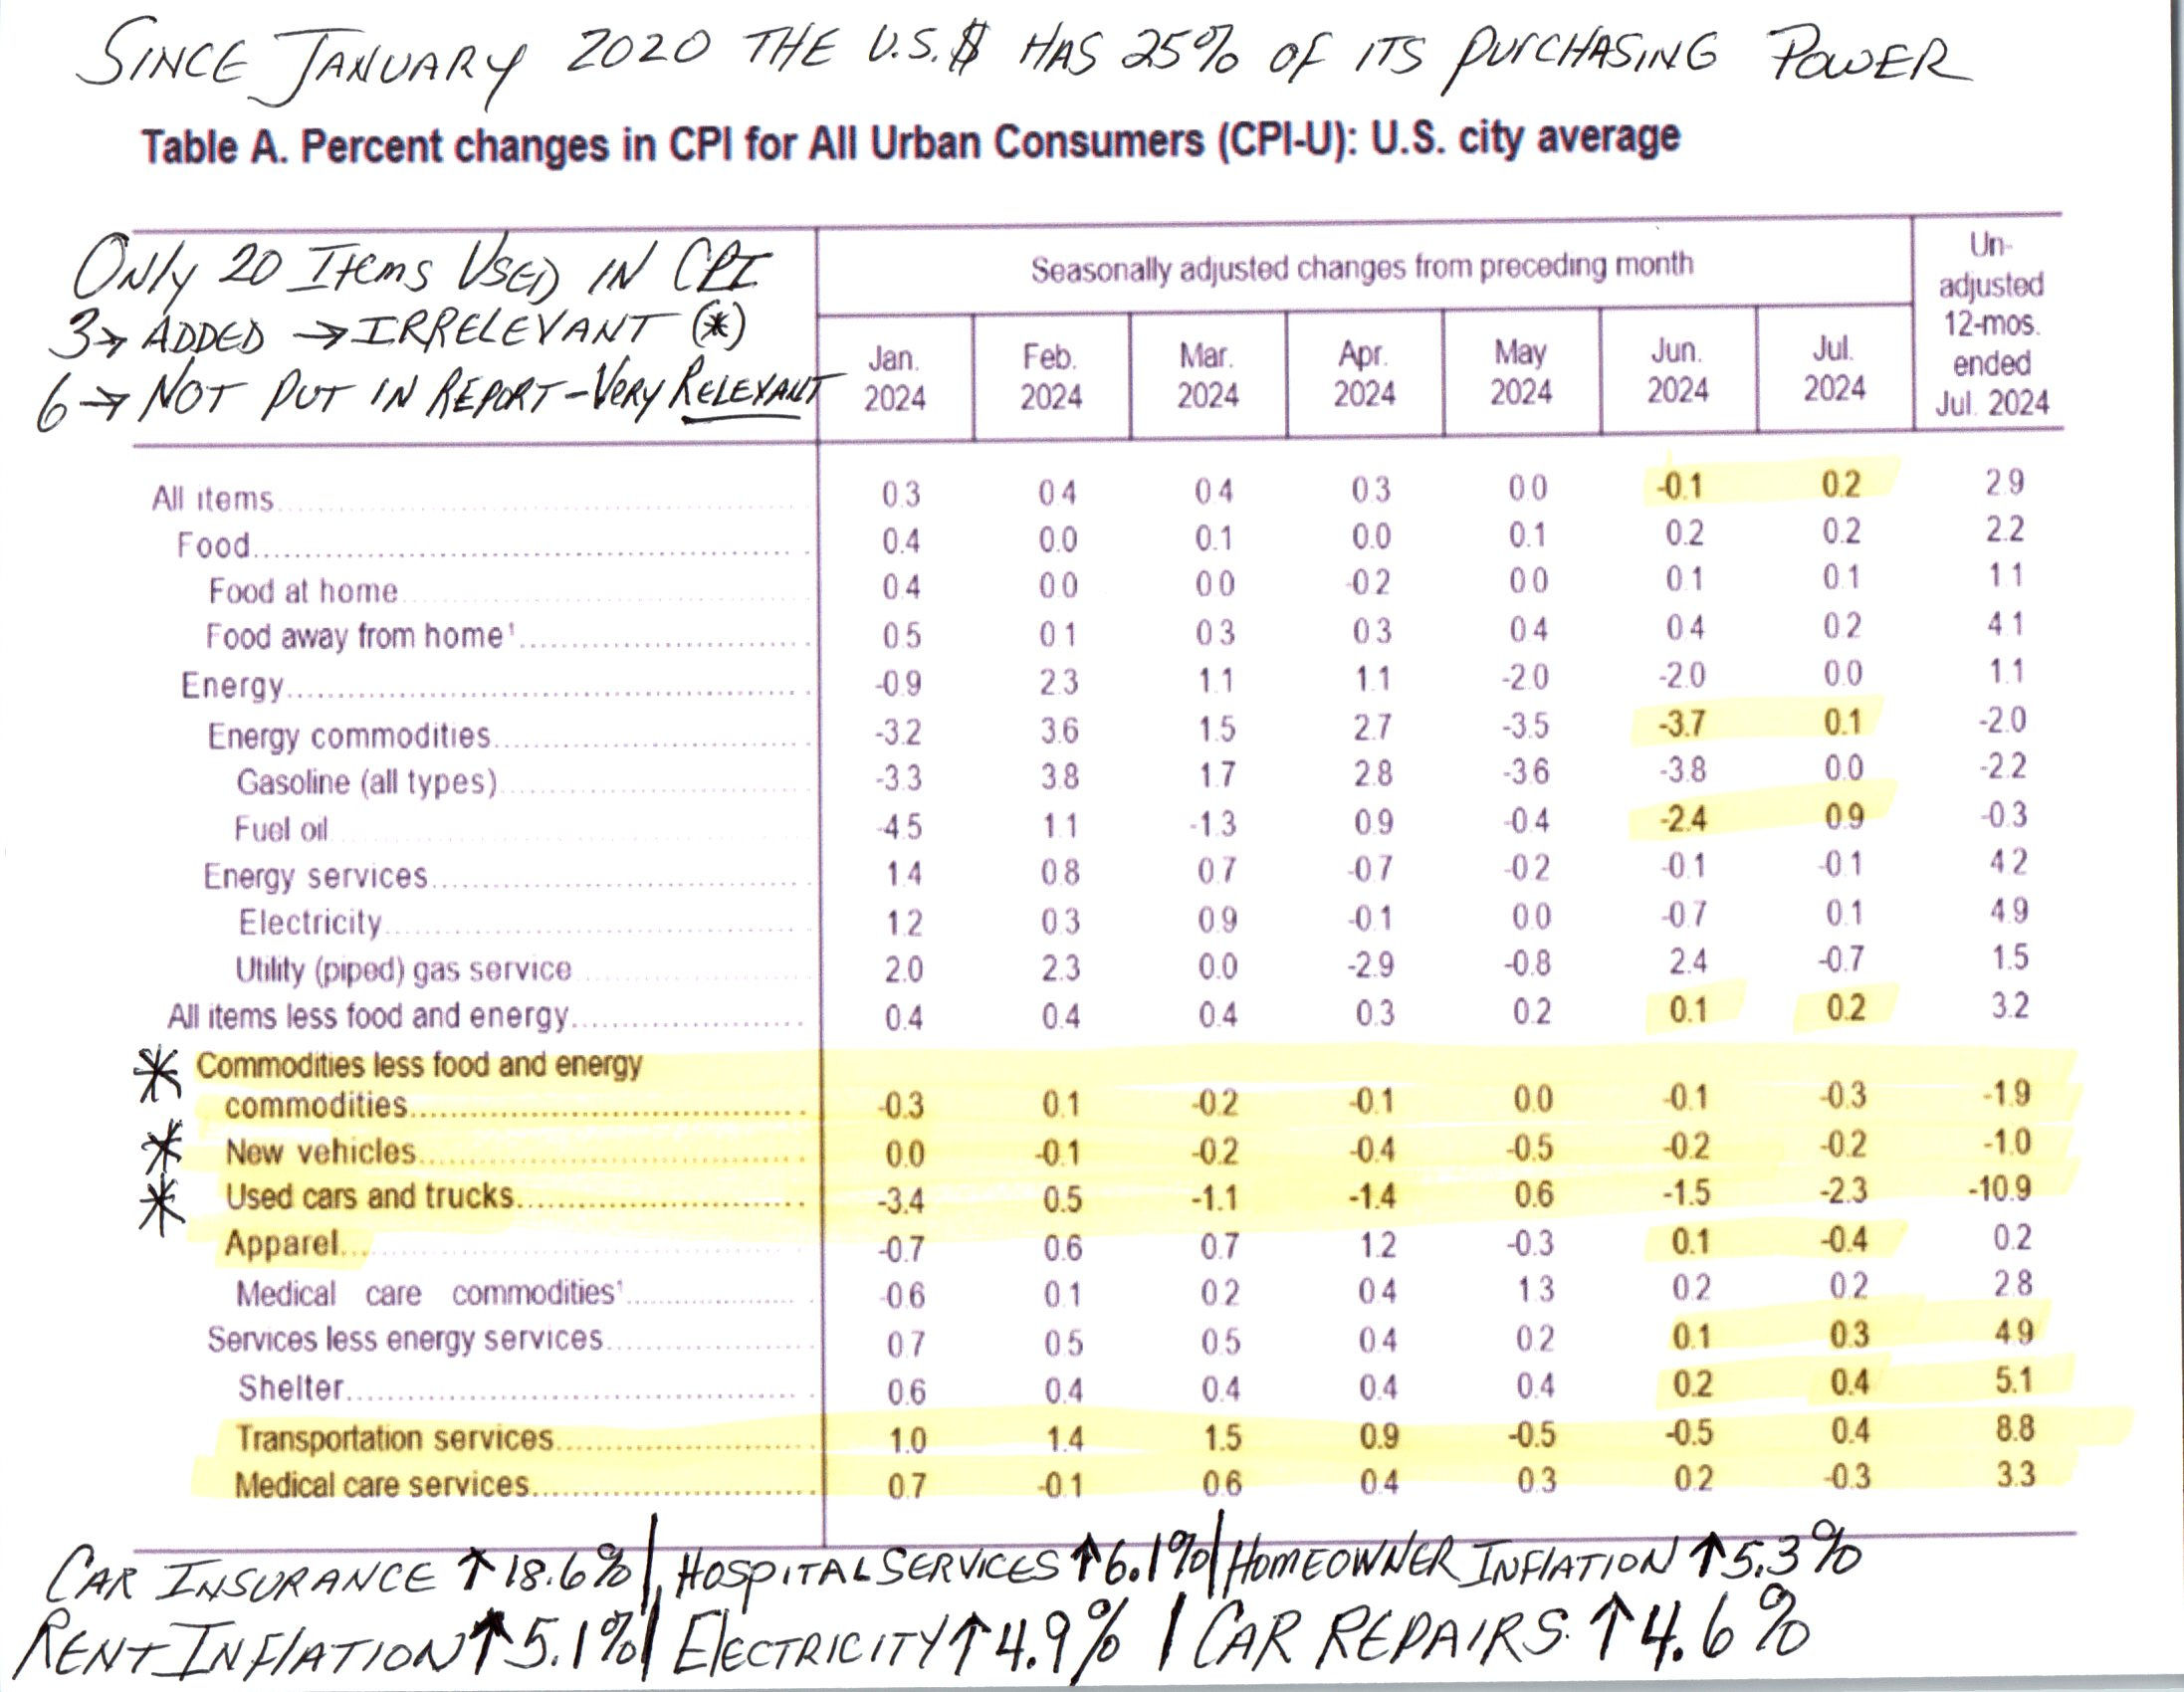 SINCE JANUARY 2020 THE U.S.$ HAS 25% OF ITS PURCHASING POWER
Table A. Percent changes in CPI for All Urban Consumers (CPI-U): U.S. city average
ONLY 20 ITEMS USED IN CPI
3→ ADDED → IRRELEVANT (*)
6→ NOT PUT IN REPORT - VERY RELEVANT
Seasonally adjusted changes from preceding month
Un-
adjusted
12-mos.
ended
Jul. 2024
Jan. 2024 Feb. 2024 Mar. 2024 Apr. 2024 May 2024 Jun. 2024 Jul. 2024
All items 0.3 0.4 0.4 0.3 0.0 -0.1 0.2 2.9
Food 0.4 0.0 0.1 0.0 0.1 0.2 0.2 2.2
Food at home 0.4 0.0 0.0 -0.2 0.0 0.1 0.1 1.1
Food away from home¹ 0.5 0.1 0.3 0.3 0.4 0.4 0.2 4.1
Energy -0.9 2.3 1.1 1.1 -2.0 -2.0 0.0 1.1
Energy commodities -3.2 3.6 1.5 2.7 -3.5 -3.7 0.1 -2.0
Gasoline (all types) -3.3 3.8 1.7 2.8 -3.6 -3.8 0.0 -2.2
Fuel oil -4.5 1.1 -1.3 0.9 -0.4 -2.4 0.9 -0.3
Energy services 1.4 0.8 0.7 -0.7 -0.2 -0.1 -0.1 4.2
Electricity 1.2 0.3 0.9 -0.1 0.0 -0.7 0.1 4.9
Utility (piped) gas service 2.0 2.3 0.0 -2.9 -0.8 2.4 -0.7 1.5
All items less food and energy 0.4 0.4 0.4 0.3 0.2 0.1 0.2 3.2
* Commodities less food and energy
commodities -0.3 0.1 -0.2 -0.1 0.0 -0.1 -0.3 -1.9
* New vehicles 0.0 -0.1 -0.2 -0.4 -0.5 -0.2 -0.2 -1.0
* Used cars and trucks -3.4 0.5 -1.1 -1.4 0.6 -1.5 -2.3 -10.9
Apparel -0.7 0.6 0.7 1.2 -0.3 0.1 -0.4 0.2
Medical care commodities¹ -0.6 0.1 0.2 0.4 1.3 0.2 0.2 2.8
Services less energy services 0.7 0.5 0.5 0.4 0.2 0.1 0.3 4.9
Shelter 0.6 0.4 0.4 0.4 0.4 0.2 0.4 5.1
Transportation services 1.0 1.4 1.5 0.9 -0.5 -0.5 0.4 8.8
Medical care services 0.7 -0.1 0.6 0.4 0.3 0.2 -0.3 3.3
CAR INSURANCE ↑ 18.6% | HOSPITAL SERVICES ↑ 6.1% | HOMEOWNER INFLATION ↑ 5.3%
RENT INFLATION ↑ 5.1% | ELECTRICITY ↑ 4.9% | CAR REPAIRS ↑ 4.6%